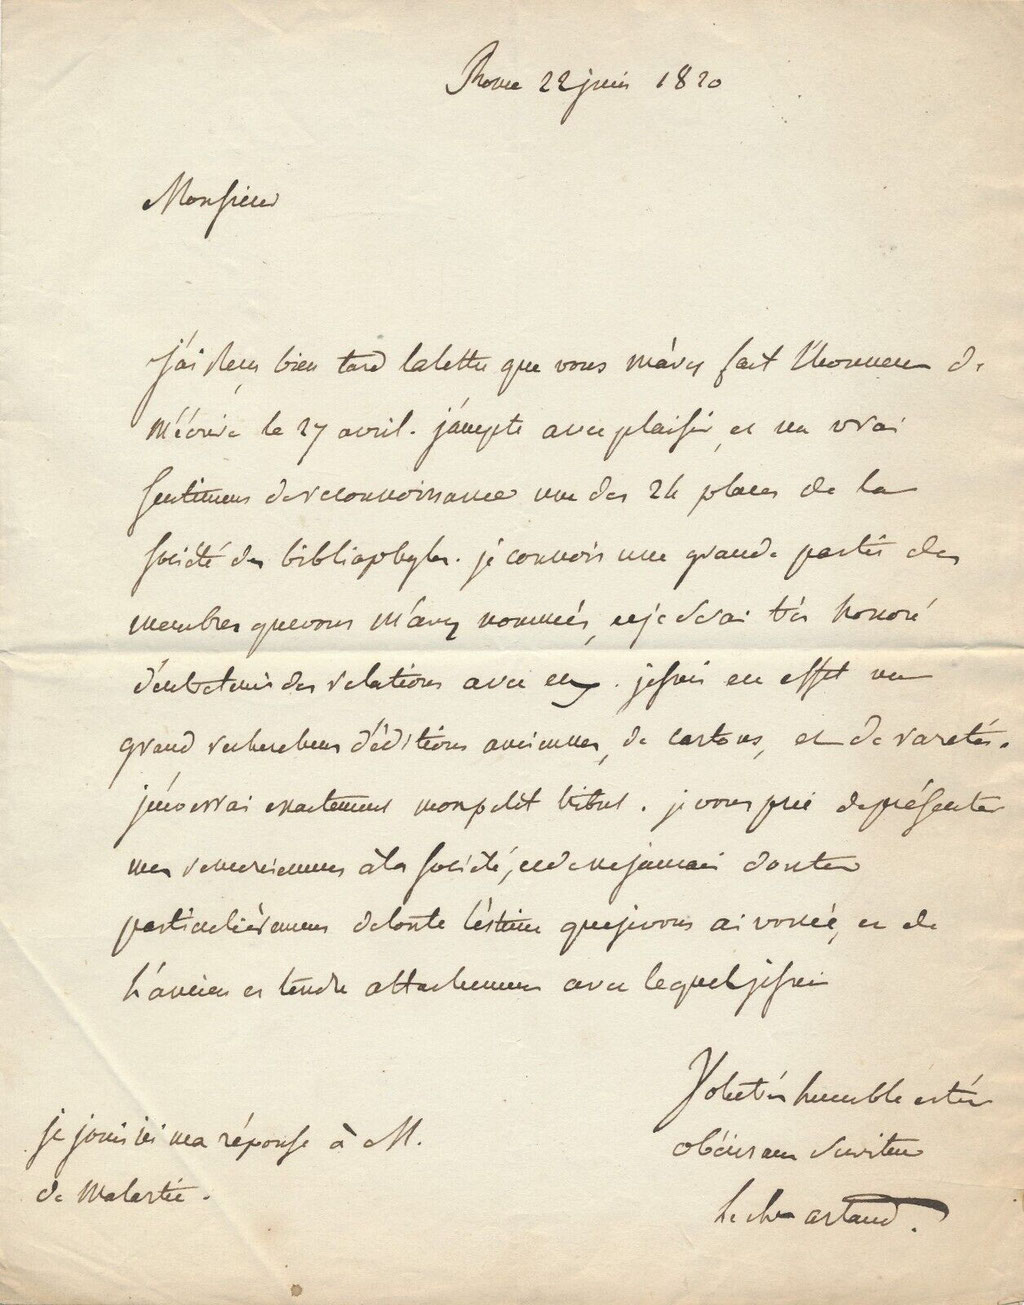 Rome 22 juin 1820
Monsieur
j'ai reçu bien tard la lettre que vous m'avez fait l'honneur de
m'écrire le 27 avril. j'accepte avec plaisir, et un vrai
sentiment de reconnoissance une des 24 places de la
société des bibliophyles. je connois une grande partie des
membres que vous m'avez nommés, et je serai très honoré
d'entretenir des relations avec eux. je suis en effet un
grand rechercheur d'éditions anciennes, de cartons, et de raretés.
j'enverrai exactement mon petit tribut. je vous prie de présenter
mes remerciemens à la société, et de ne jamais douter
particulièrement de toute l'estime que je vous ai vouée, et de
l'ancien et tendre attachement avec lequel je suis
Votre très humble et très
obéissant serviteur
le chr artaud.
je joins ici ma réponse à M.
de Malartic.